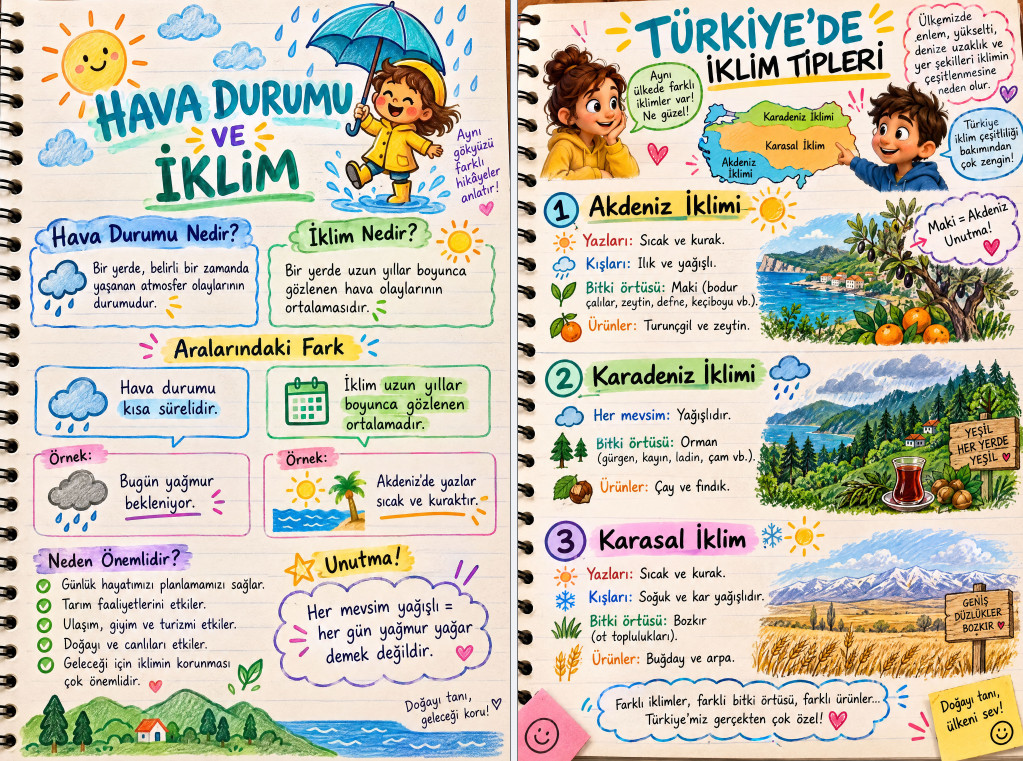 HAVA DURUMU
VE
İKLİM
Aynı
gökyüzü
farklı
hikâyeler
anlatır!
Hava Durumu Nedir?
Bir yerde, belirli bir zamanda
yaşanan atmosfer olaylarının
durumudur.
İklim Nedir?
Bir yerde uzun yıllar boyunca
gözlenen hava olaylarının
ortalamasıdır.
Aralarındaki Fark
Hava durumu
kısa sürelidir.
İklim uzun yıllar
boyunca gözlenen
ortalamadır.
Örnek:
Bugün yağmur
bekleniyor.
Örnek:
Akdeniz'de yazlar
sıcak ve kuraktır.
Neden Önemlidir?
Günlük hayatımızı planlamamızı sağlar.
Tarım faaliyetlerini etkiler.
Ulaşım, giyim ve turizmi etkiler.
Doğayı ve canlıları etkiler.
Geleceği için iklimin korunması
çok önemlidir.
Unutma!
Her mevsim yağışlı =
her gün yağmur yağar
demek değildir.
Doğayı tanı,
geleceği koru!
TÜRKİYE'DE
İKLİM TİPLERİ
Aynı
ülkede farklı
iklimler var!
Ne güzel!
Ülkemizde
enlem, yükselti,
denize uzaklık ve
yer şekilleri iklimin
çeşitlenmesine
neden olur.
Karadeniz İklimi
Karasal İklim
Akdeniz
İklimi
Türkiye
iklim çeşitliliği
bakımından
çok zengin!
1 Akdeniz İklimi
Yazları: Sıcak ve kurak.
Kışları: Ilık ve yağışlı.
Bitki örtüsü: Maki (bodur
çalılar, zeytin, defne, keçiboyu vb.).
Ürünler: Turunçgil ve zeytin.
Maki = Akdeniz
Unutma!
2 Karadeniz İklimi
Her mevsim: Yağışlıdır.
Bitki örtüsü: Orman
(gürgen, kayın, ladin, çam vb.).
Ürünler: Çay ve fındık.
YEŞİL
HER YERDE
YEŞİL
3 Karasal İklim
Yazları: Sıcak ve kurak.
Kışları: Soğuk ve kar yağışlıdır.
Bitki örtüsü: Bozkır
(ot toplulukları).
Ürünler: Buğday ve arpa.
GENİŞ
DÜZLÜKLER
BOZKIR
Farklı iklimler, farklı bitki örtüsü, farklı ürünler...
Türkiye'miz gerçekten çok özel!
Doğayı tanı,
ülkeni sev!